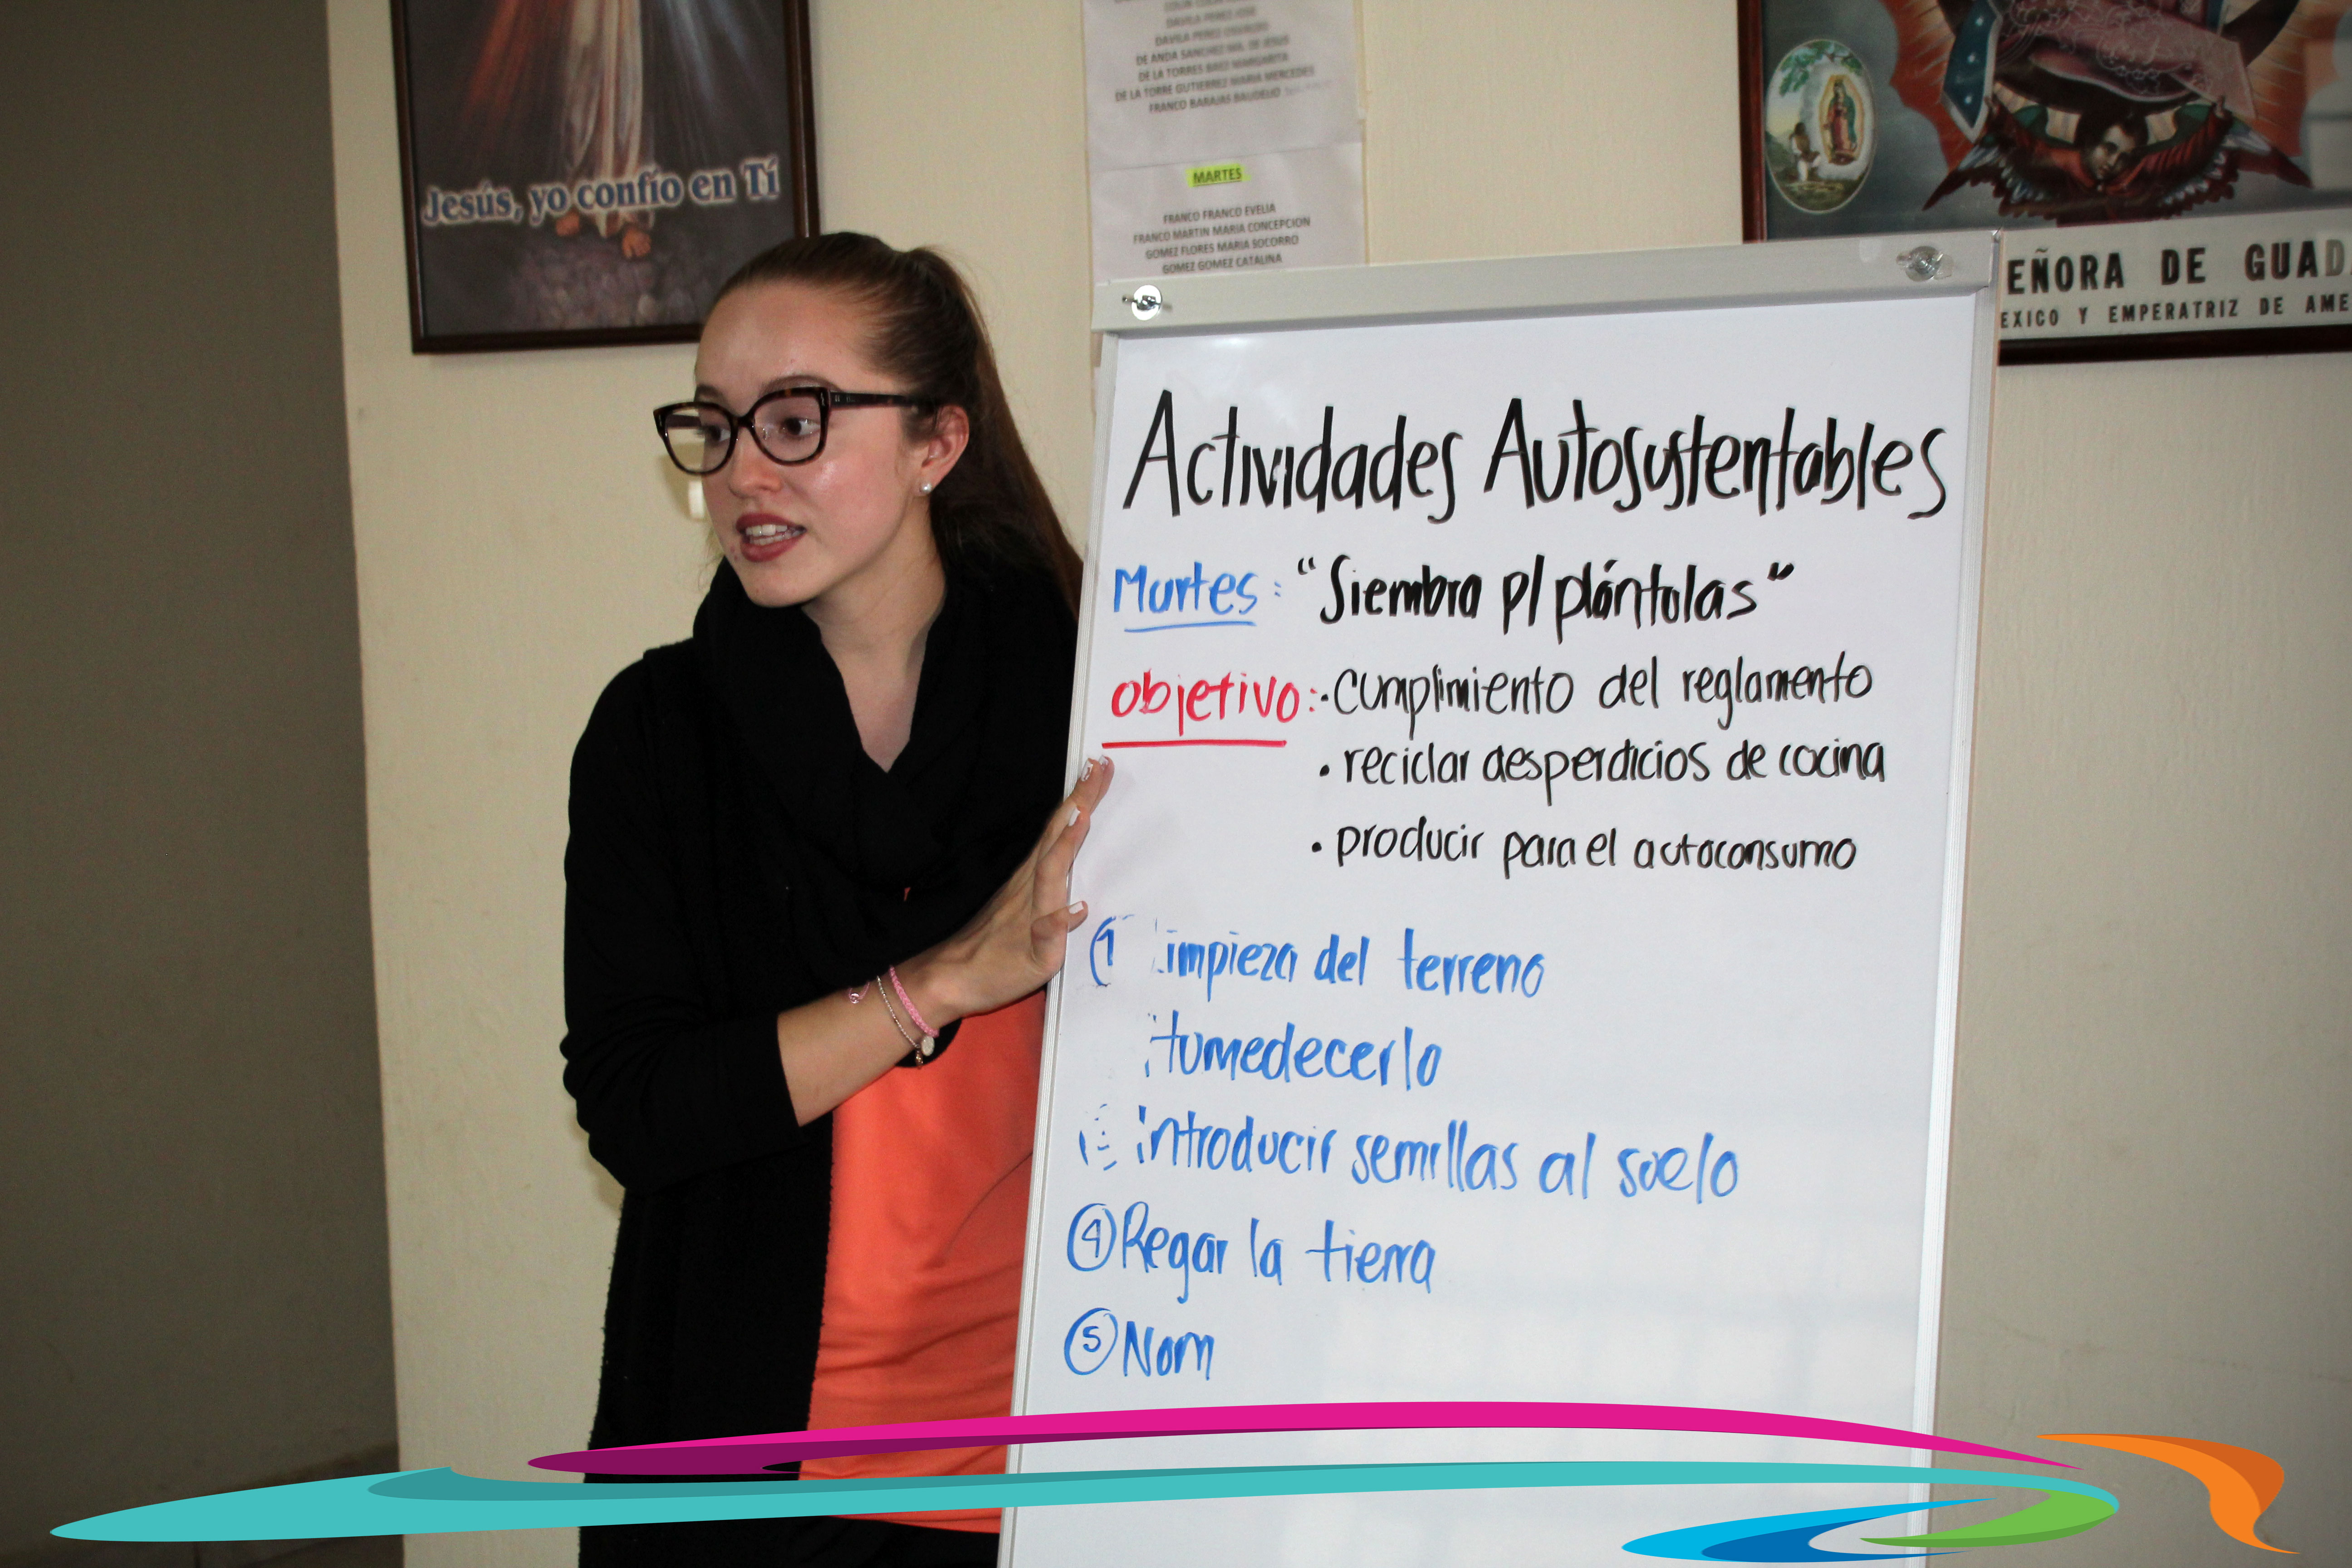 Jesús, yo confío en Tí
DAVILA PEREZ JOSE
DAVILA PEREZ OSWALDO
DE ANDA SANCHEZ MA. DE JESUS
DE LA TORRES BAEZ MARGARITA
DE LA TORRE GUTIERREZ MARIA MERCEDES
FRANCO BARAJAS BAUDELIO
MARTES
FRANCO FRANCO EVELIA
FRANCO MARTIN MARIA CONCEPCION
GOMEZ FLORES MARIA SOCORRO
GOMEZ GOMEZ CATALINA
EÑORA DE GUAD
EXICO Y EMPERATRIZ DE AME
Actividades Autosustentables
Martes: "Siembra p/ plántulas"
objetivo: · cumplimiento del reglamento
• reciclar desperdicios de cocina
• producir para el autoconsumo
1 Limpieza del terreno
Humedecerlo
introducir semillas al suelo
4 Regar la tierra
5 Nom